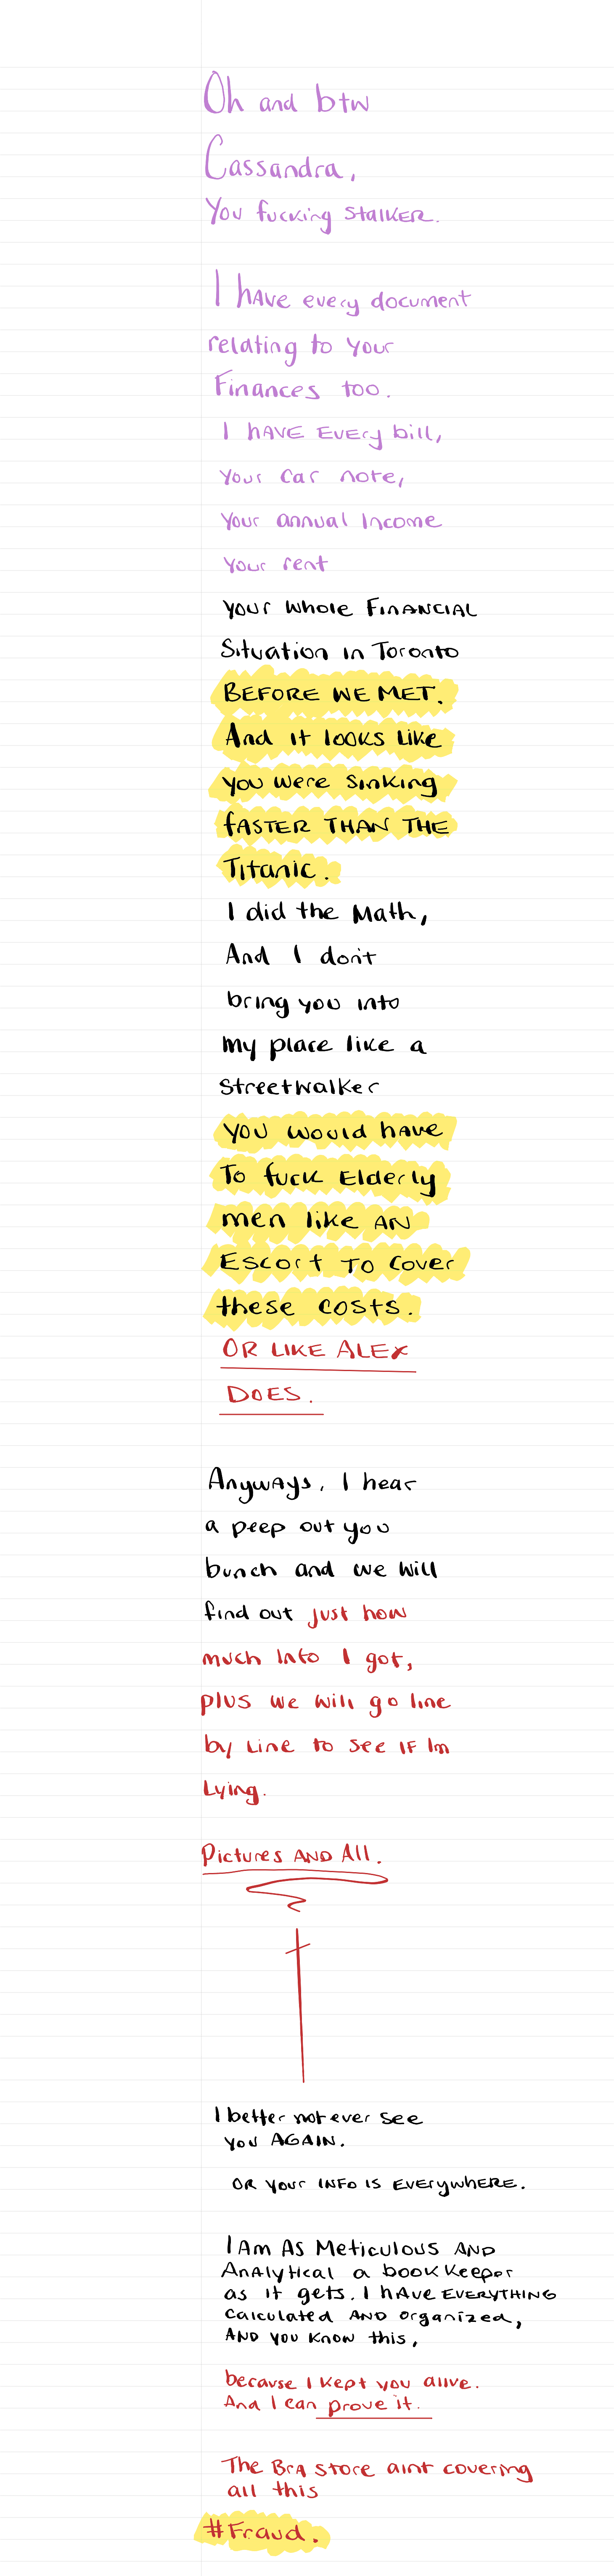 Oh and btw
Cassandra,
You fucking stalker.
I have every document
relating to your
Finances too.
I have every bill,
your car note,
your annual income
your rent
your whole financial
situation in Toronto
BEFORE WE MET.
And it looks like
you were sinking
faster than the
Titanic.
I did the math,
And I don't
bring you into
my place like a
streetwalker
you would have
to fuck elderly
men like an
escort to cover
these costs.
OR LIKE ALEX
DOES.
Anyways, I hear
a peep out you
bunch and we will
find out just how
much info I got,
plus we will go line
by line to see if Im
Lying.
Pictures AND All.
I better not ever see
you AGAIN.
OR your INFO IS EVERYWHERE.
I AM AS Meticulous AND
Analytical a bookkeeper
as it gets. I have EVERYTHING
calculated AND organized,
AND you know this,
because I kept you alive.
And I can prove it.
The Bra store aint covering
all this
#Fraud.